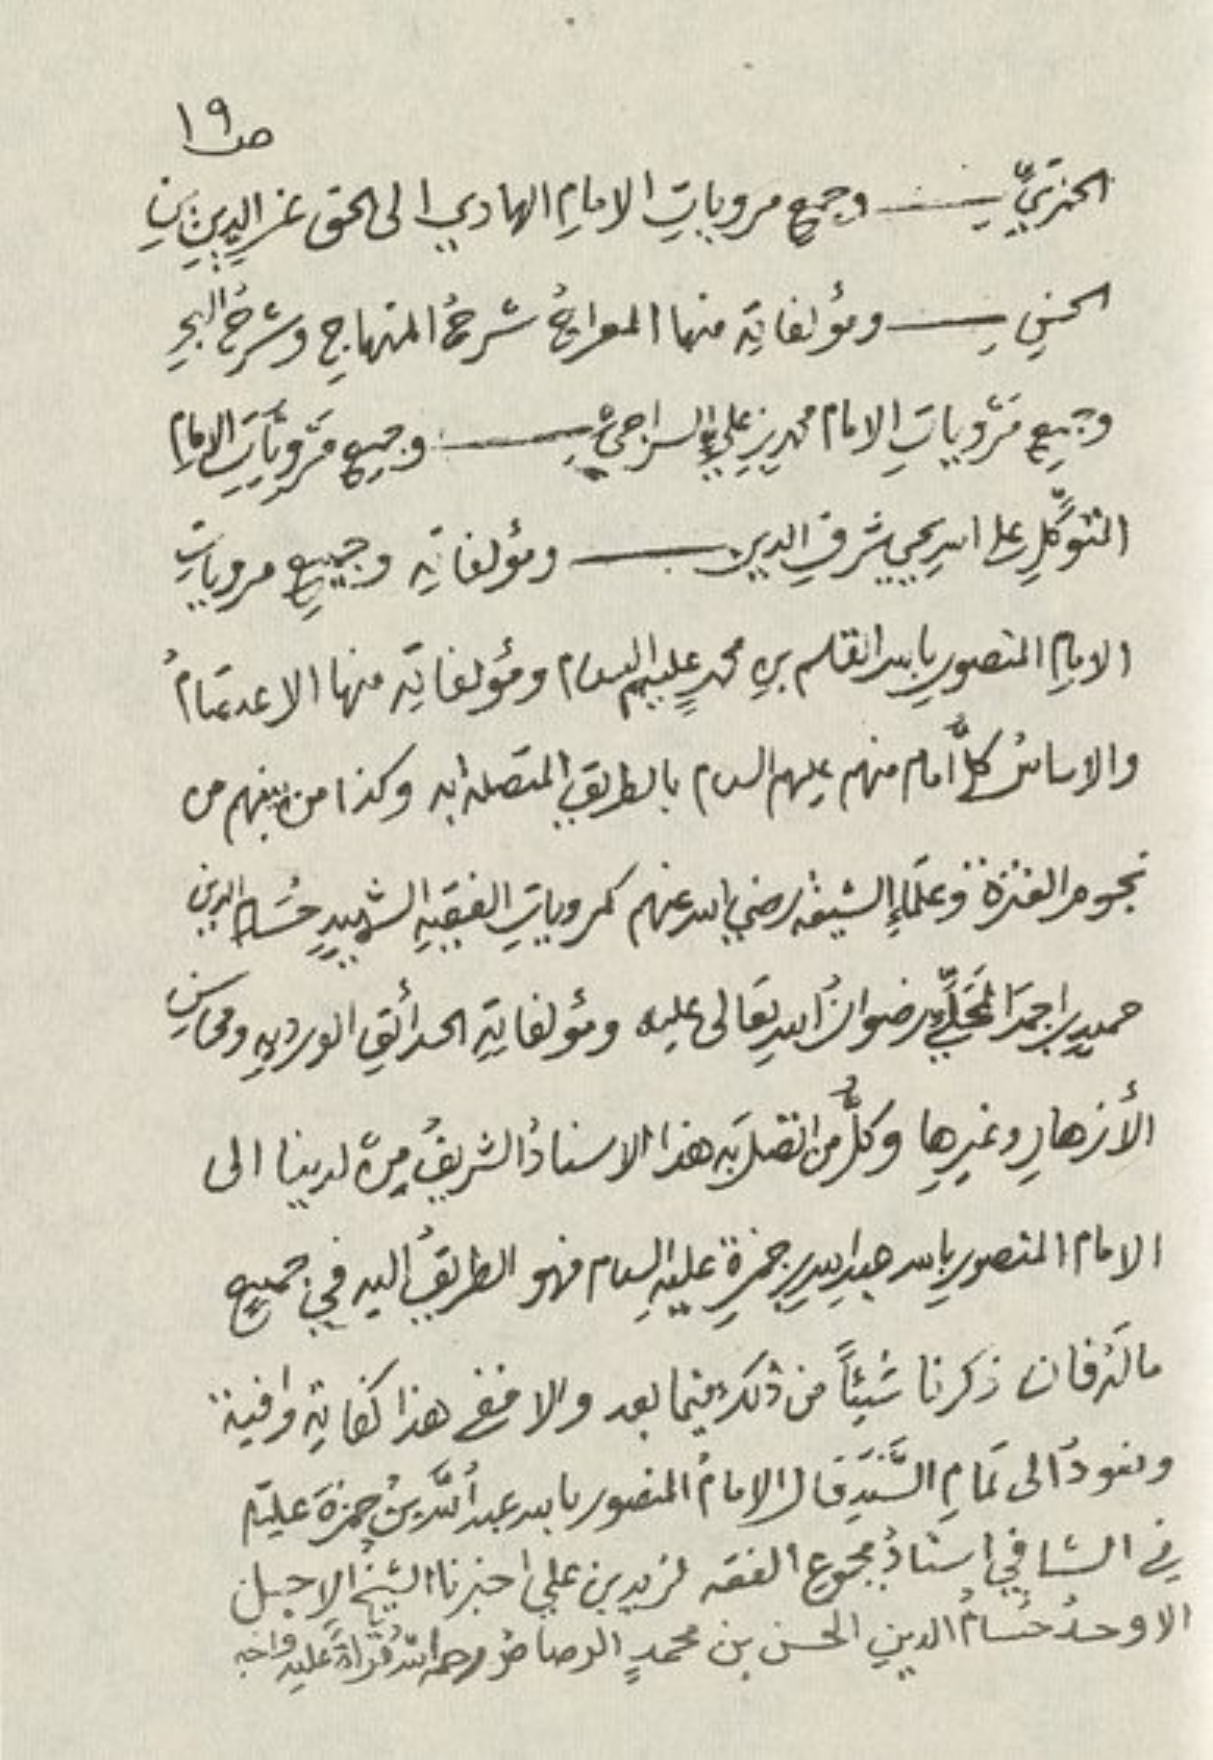 ص١٩
الحمزيِّ ــــــ وجميع مروياتِ الامامِ الهادي الى الحق عز الدين بنِ
الحسنِ ــــــ ومؤلفاتِه منها المعراجُ شرحُ المنهاجِ وشرحُ البحرِ
وجميعِ مَرْوياتِ الامام محمد بن علي السراجيِّ ــــــ وجميعِ مَرْوِيَّاتِ الامامِ
المتوَكِّلِ على الله يحيى شرفِ الدين ــــــ ومؤلفاتِه وجميعِ مروياتِ
الامامِ المنصورِ بالله القاسم بن محمدٍ عليهم السلام ومؤلفاتِه منها الاعتصامُ
والاساسُ كلُّ امام منهم عليهم السلام بالطريقِ المتصلة به وكذا من بينهم من
نجوم العترة وعلَماءِ الشيعة رضي الله عنهم كمروياتِ الفقيهِ الشهيدِ حُسَام الدين
حميد بن احمدَ المُحَلِّي رضوانُ الله تعالى عليه ومؤلفاتِه الحدائقِ الوردية ومحاسنِ
الأزهارِ وغيرِها وكلُّ من اتصل به هذا الاسنادُ الشريفُ مِن لدينا الى
الامام المنصورِ بالله عبد الله بن حمزة عليه السلام فهو الطريقُ اليه في جميع
مالَهُ فان ذكرنا شيئاً من ذلك فيما بعد والا ففي هذا كفاية وافية
ونعودُ الى تمامِ السَّنَدِ قال الامامُ المنصور بالله عبدُ اللَّه بنُ حمزة عليه
في الشافي اسنادُ مجموع الفقه لزيد بن علي اخبرنا الشيخُ الاجل
الاوحدُ حُسَامُ الدين الحسن بن محمدٍ الرصاصُ رحمه اللهُ قراءةً عليه